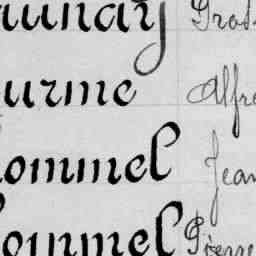 aunay Prod
urme Alfre
ommel Jean
ommel Pierre